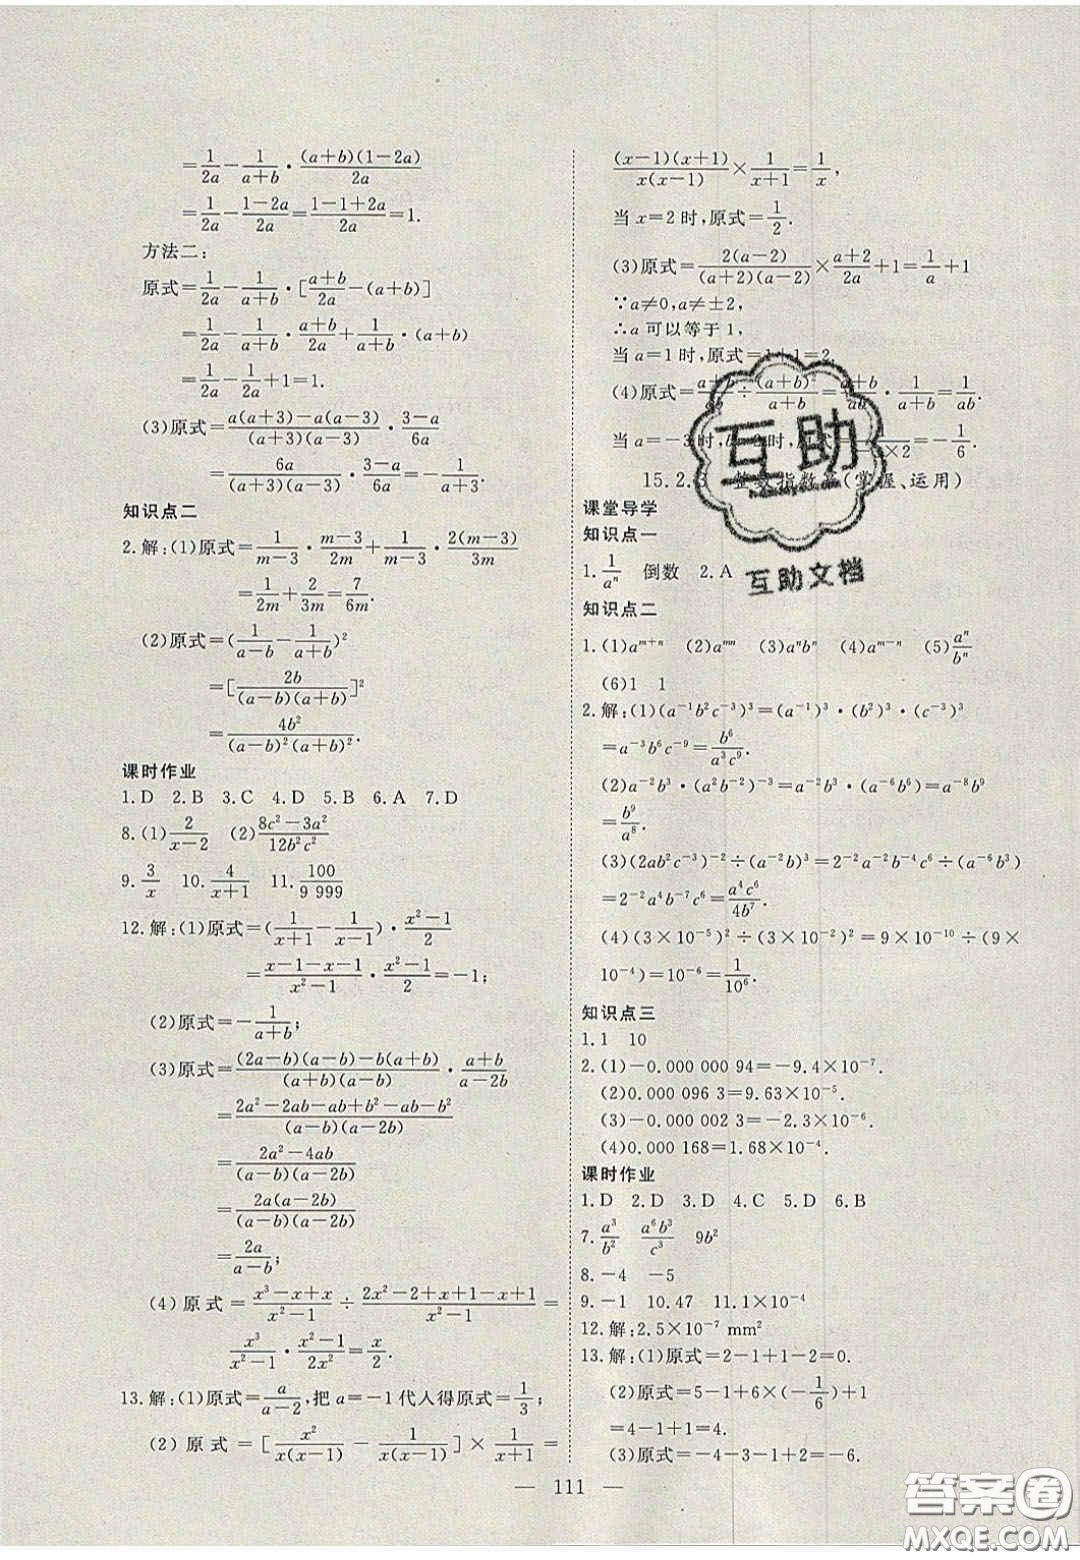 =1/(2a)-1/(a+b)·(a+b)(1-2a)/(2a)
=1/(2a)-(1-2a)/(2a)=(1-1+2a)/(2a)=1.
方法二:
原式=1/(2a)-1/(a+b)·[(a+b)/(2a)-(a+b)]
=1/(2a)-1/(a+b)·(a+b)/(2a)+1/(a+b)·(a+b)
=1/(2a)-1/(2a)+1=1.
(3)原式=(a(a+3)-a(a-3))/((a+3)(a-3))·(3-a)/(6a)
=6a/((a+3)(a-3))·(3-a)/(6a)=-1/(a+3).
知识点二
2.解:(1)原式=1/(m-3)·(m-3)/(2m)+1/(m-3)·2(m-3)/(3m)
=1/(2m)+2/(3m)=7/(6m).
(2)原式=(1/(a-b)-1/(a+b))²
=[2b/((a-b)(a+b))]²
=4b²/((a-b)²(a+b)²).
课时作业
1.D 2.B 3.C 4.D 5.B 6.A 7.D
8.(1)2/(x-2) (2)(8c²-3a²)/(12b²c²)
9.3/x 10.4/(x+1) 11.100/9 999
12.解:(1)原式=(1/(x+1)-1/(x-1))·(x²-1)/2
=(x-1-x-1)/(x²-1)·(x²-1)/2=-1;
(2)原式=-1/(a+b);
(3)原式=((2a-b)(a-b)-b(a+b))/((a+b)(a-b))·(a+b)/(a-2b)
=(2a²-2ab-ab+b²-ab-b²)/((a-b)(a-2b))
=(2a²-4ab)/((a-b)(a-2b))
=2a(a-2b)/((a-b)(a-2b))
=2a/(a-b);
(4)原式=(x³-x+x)/(x²-1)÷(2x²-2+x+1-x+1)/(x²-1)=
x³/(x²-1)·(x²-1)/(2x²)=x/2.
13.解:(1)原式=a/(a-2),把a=-1代人得原式=1/3;
(2)原式=[x²/(x(x-1))-1/(x(x-1))]×1/(x+1)=
(x-1)(x+1)/(x(x-1))×1/(x+1)=1/x.
当x=2时,原式=1/2.
(3)原式=2(a-2)/((a+2)(a-2))×(a+2)/(2a)+1=1/a+1
∵a≠0,a≠±2,
∴a可以等于1,
当a=1时,原式=1+1=2.
(4)原式=(a+b)/(ab)÷(a+b)²/(a+b)=(a+b)/(ab)·1/(a+b)=1/(ab).
当a=-3时,b= 时,原式= ×2=-1/6.
15.2.3 整数指数幂(掌握、运用)
课堂导学
知识点一
1.1/aⁿ 倒数 2.A
知识点二
1.(1)aᵐ⁺ⁿ (2)aᵐⁿ (3)aⁿbⁿ (4)aᵐ⁻ⁿ (5)aⁿ/bⁿ
(6)1 1
2.解:(1)(a⁻¹b²c⁻³)³=(a⁻¹)³·(b²)³·(c⁻³)³
=a⁻³b⁶c⁻⁹=b⁶/(a³c⁹).
(2)a⁻²b³·(a²b⁻²)⁻³=a⁻²b³·a⁻⁶b⁶=a⁻⁸b⁹
=b⁹/a⁸.
(3)(2ab²c⁻³)⁻²÷(a⁻²b)³=2⁻²a⁻²b⁻⁴c⁶÷(a⁻⁶b³)
=2⁻²a⁴b⁻⁷c⁶=a⁴c⁶/(4b⁷).
(4)(3×10⁻⁵)²÷(3×10⁻²)²=9×10⁻¹⁰÷(9×
10⁻⁴)=10⁻⁶=1/10⁶.
知识点三
1.1 10
2.(1)-0.000 000 94=-9.4×10⁻⁷.
(2)0.000 096 3=9.63×10⁻⁵.
(3)-0.000 002 3=-2.3×10⁻⁶.
(4)0.000 168=1.68×10⁻⁴.
课时作业
1.D 2.D 3.D 4.C 5.D 6.B
7.a³/b² a⁶b³/c³ 9b²
8.-4 -5
9.-1 10.47 11.1×10⁻⁴
12.解:2.5×10⁻⁷ mm²
13.解:(1)原式=2-1+1-2=0.
(2)原式=5-1+6×(-1/6)+1
=4-1+1=4.
(3)原式=-4-3-1+2=-6.
互助
互助文档
— 111 —
答案圈
MXQE.COM